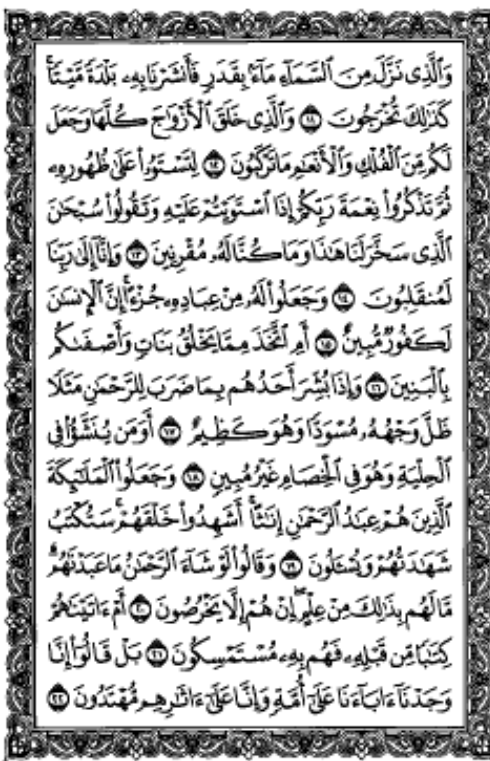 وَٱلَّذِى نَزَّلَ مِنَ ٱلسَّمَآءِ مَآءًۢ بِقَدَرٍ فَأَنشَرْنَا بِهِۦ بَلْدَةً مَّيْتًا ۚ
كَذَٰلِكَ تُخْرَجُونَ ١١ وَٱلَّذِى خَلَقَ ٱلْأَزْوَٰجَ كُلَّهَا وَجَعَلَ
لَكُم مِّنَ ٱلْفُلْكِ وَٱلْأَنْعَٰمِ مَا تَرْكَبُونَ ١٢ لِتَسْتَوُۥا۟ عَلَىٰ ظُهُورِهِۦ
ثُمَّ تَذْكُرُوا۟ نِعْمَةَ رَبِّكُمْ إِذَا ٱسْتَوَيْتُمْ عَلَيْهِ وَتَقُولُوا۟ سُبْحَٰنَ
ٱلَّذِى سَخَّرَ لَنَا هَٰذَا وَمَا كُنَّا لَهُۥ مُقْرِنِينَ ١٣ وَإِنَّآ إِلَىٰ رَبِّنَا
لَمُنقَلِبُونَ ١٤ وَجَعَلُوا۟ لَهُۥ مِنْ عِبَادِهِۦ جُزْءًا ۚ إِنَّ ٱلْإِنسَٰنَ
لَكَفُورٌ مُّبِينٌ ١٥ أَمِ ٱتَّخَذَ مِمَّا يَخْلُقُ بَنَاتٍ وَأَصْفَىٰكُم
بِٱلْبَنِينَ ١٦ وَإِذَا بُشِّرَ أَحَدُهُم بِمَا ضَرَبَ لِلرَّحْمَٰنِ مَثَلًا
ظَلَّ وَجْهُهُۥ مُسْوَدًّا وَهُوَ كَظِيمٌ ١٧ أَوَمَن يُنَشَّؤُا۟ فِى
ٱلْحِلْيَةِ وَهُوَ فِى ٱلْخِصَامِ غَيْرُ مُبِينٍ ١٨ وَجَعَلُوا۟ ٱلْمَلَٰٓئِكَةَ
ٱلَّذِينَ هُمْ عِبَٰدُ ٱلرَّحْمَٰنِ إِنَٰثًا ۚ أَشَهِدُوا۟ خَلْقَهُمْ ۚ سَتُكْتَبُ
شَهَٰدَتُهُمْ وَيُسْـَٔلُونَ ١٩ وَقَالُوا۟ لَوْ شَآءَ ٱلرَّحْمَٰنُ مَا عَبَدْنَٰهُم ۗ
مَّا لَهُم بِذَٰلِكَ مِنْ عِلْمٍ ۖ إِنْ هُمْ إِلَّا يَخْرُصُونَ ٢٠ أَمْ ءَاتَيْنَٰهُمْ
كِتَٰبًا مِّن قَبْلِهِۦ فَهُم بِهِۦ مُسْتَمْسِكُونَ ٢١ بَلْ قَالُوٓا۟ إِنَّا
وَجَدْنَآ ءَابَآءَنَا عَلَىٰٓ أُمَّةٍ وَإِنَّا عَلَىٰٓ ءَاثَٰرِهِم مُّهْتَدُونَ ٢٢